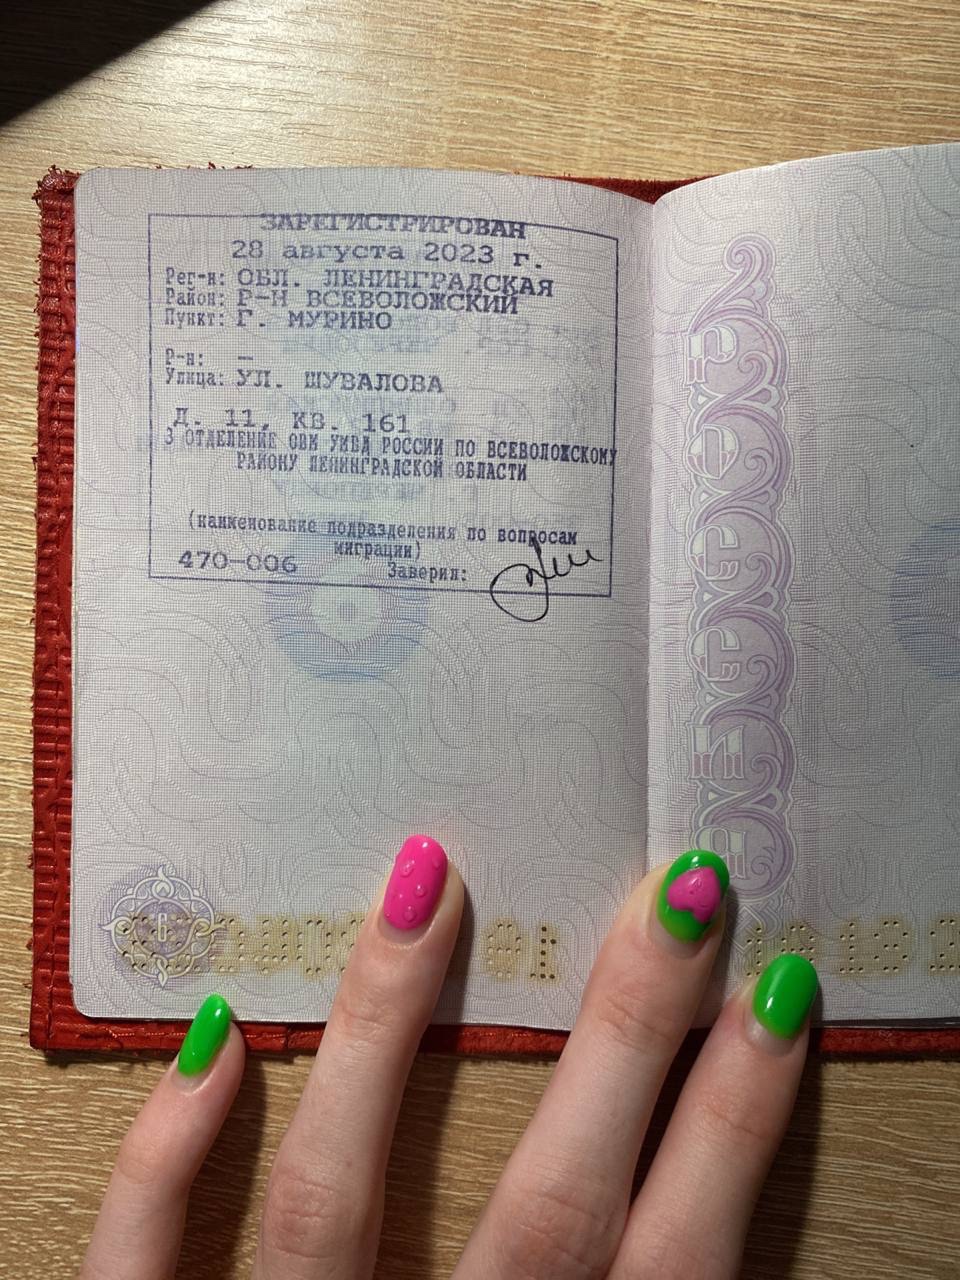 ЗАРЕГИСТРИРОВАН
28 августа 2023 г.
Рег-н: ОБЛ. ЛЕНИНГРАДСКАЯ
Район: Р-Н ВСЕВОЛОЖСКИЙ
Пункт: Г. МУРИНО
Р-н: —
Улица: УЛ. ШУВАЛОВА
Д. 11, КВ. 161
3 ОТДЕЛЕНИЕ ОВМ УМВД РОССИИ ПО ВСЕВОЛОЖСКОМУ
РАЙОНУ ЛЕНИНГРАДСКОЙ ОБЛАСТИ
(наименование подразделения по вопросам
миграции)
470-006 Заверил:
6